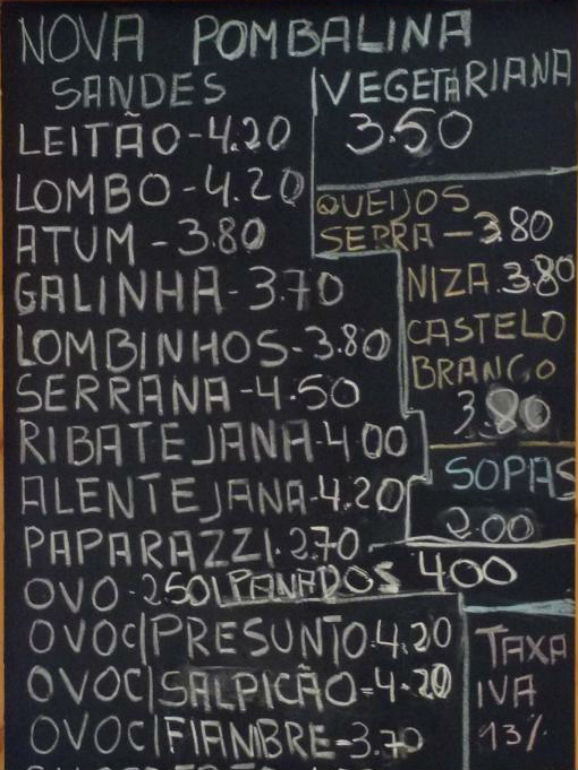 NOVA POMBALINA
SANDES
LEITÃO-4.20
LOMBO-4.20
ATUM-3.80
GALINHA-3.70
LOMBINHOS-3.80
SERRANA-4.50
RIBATEJANA-4.00
ALENTEJANA-4.20
PAPARAZZI.2.70
OVO-2.50
PANADOS 4.00
OVO C/PRESUNTO-4.20
OVO C/SALPICÃO-4.20
OVO C/FIAMBRE-3.70
VEGETARIANA
3.50
QUEIJOS
SERRA-3.80
NIZA.3.80
CASTELO
BRANCO
3.80
SOPAS
2.00
TAXA
IVA
13%